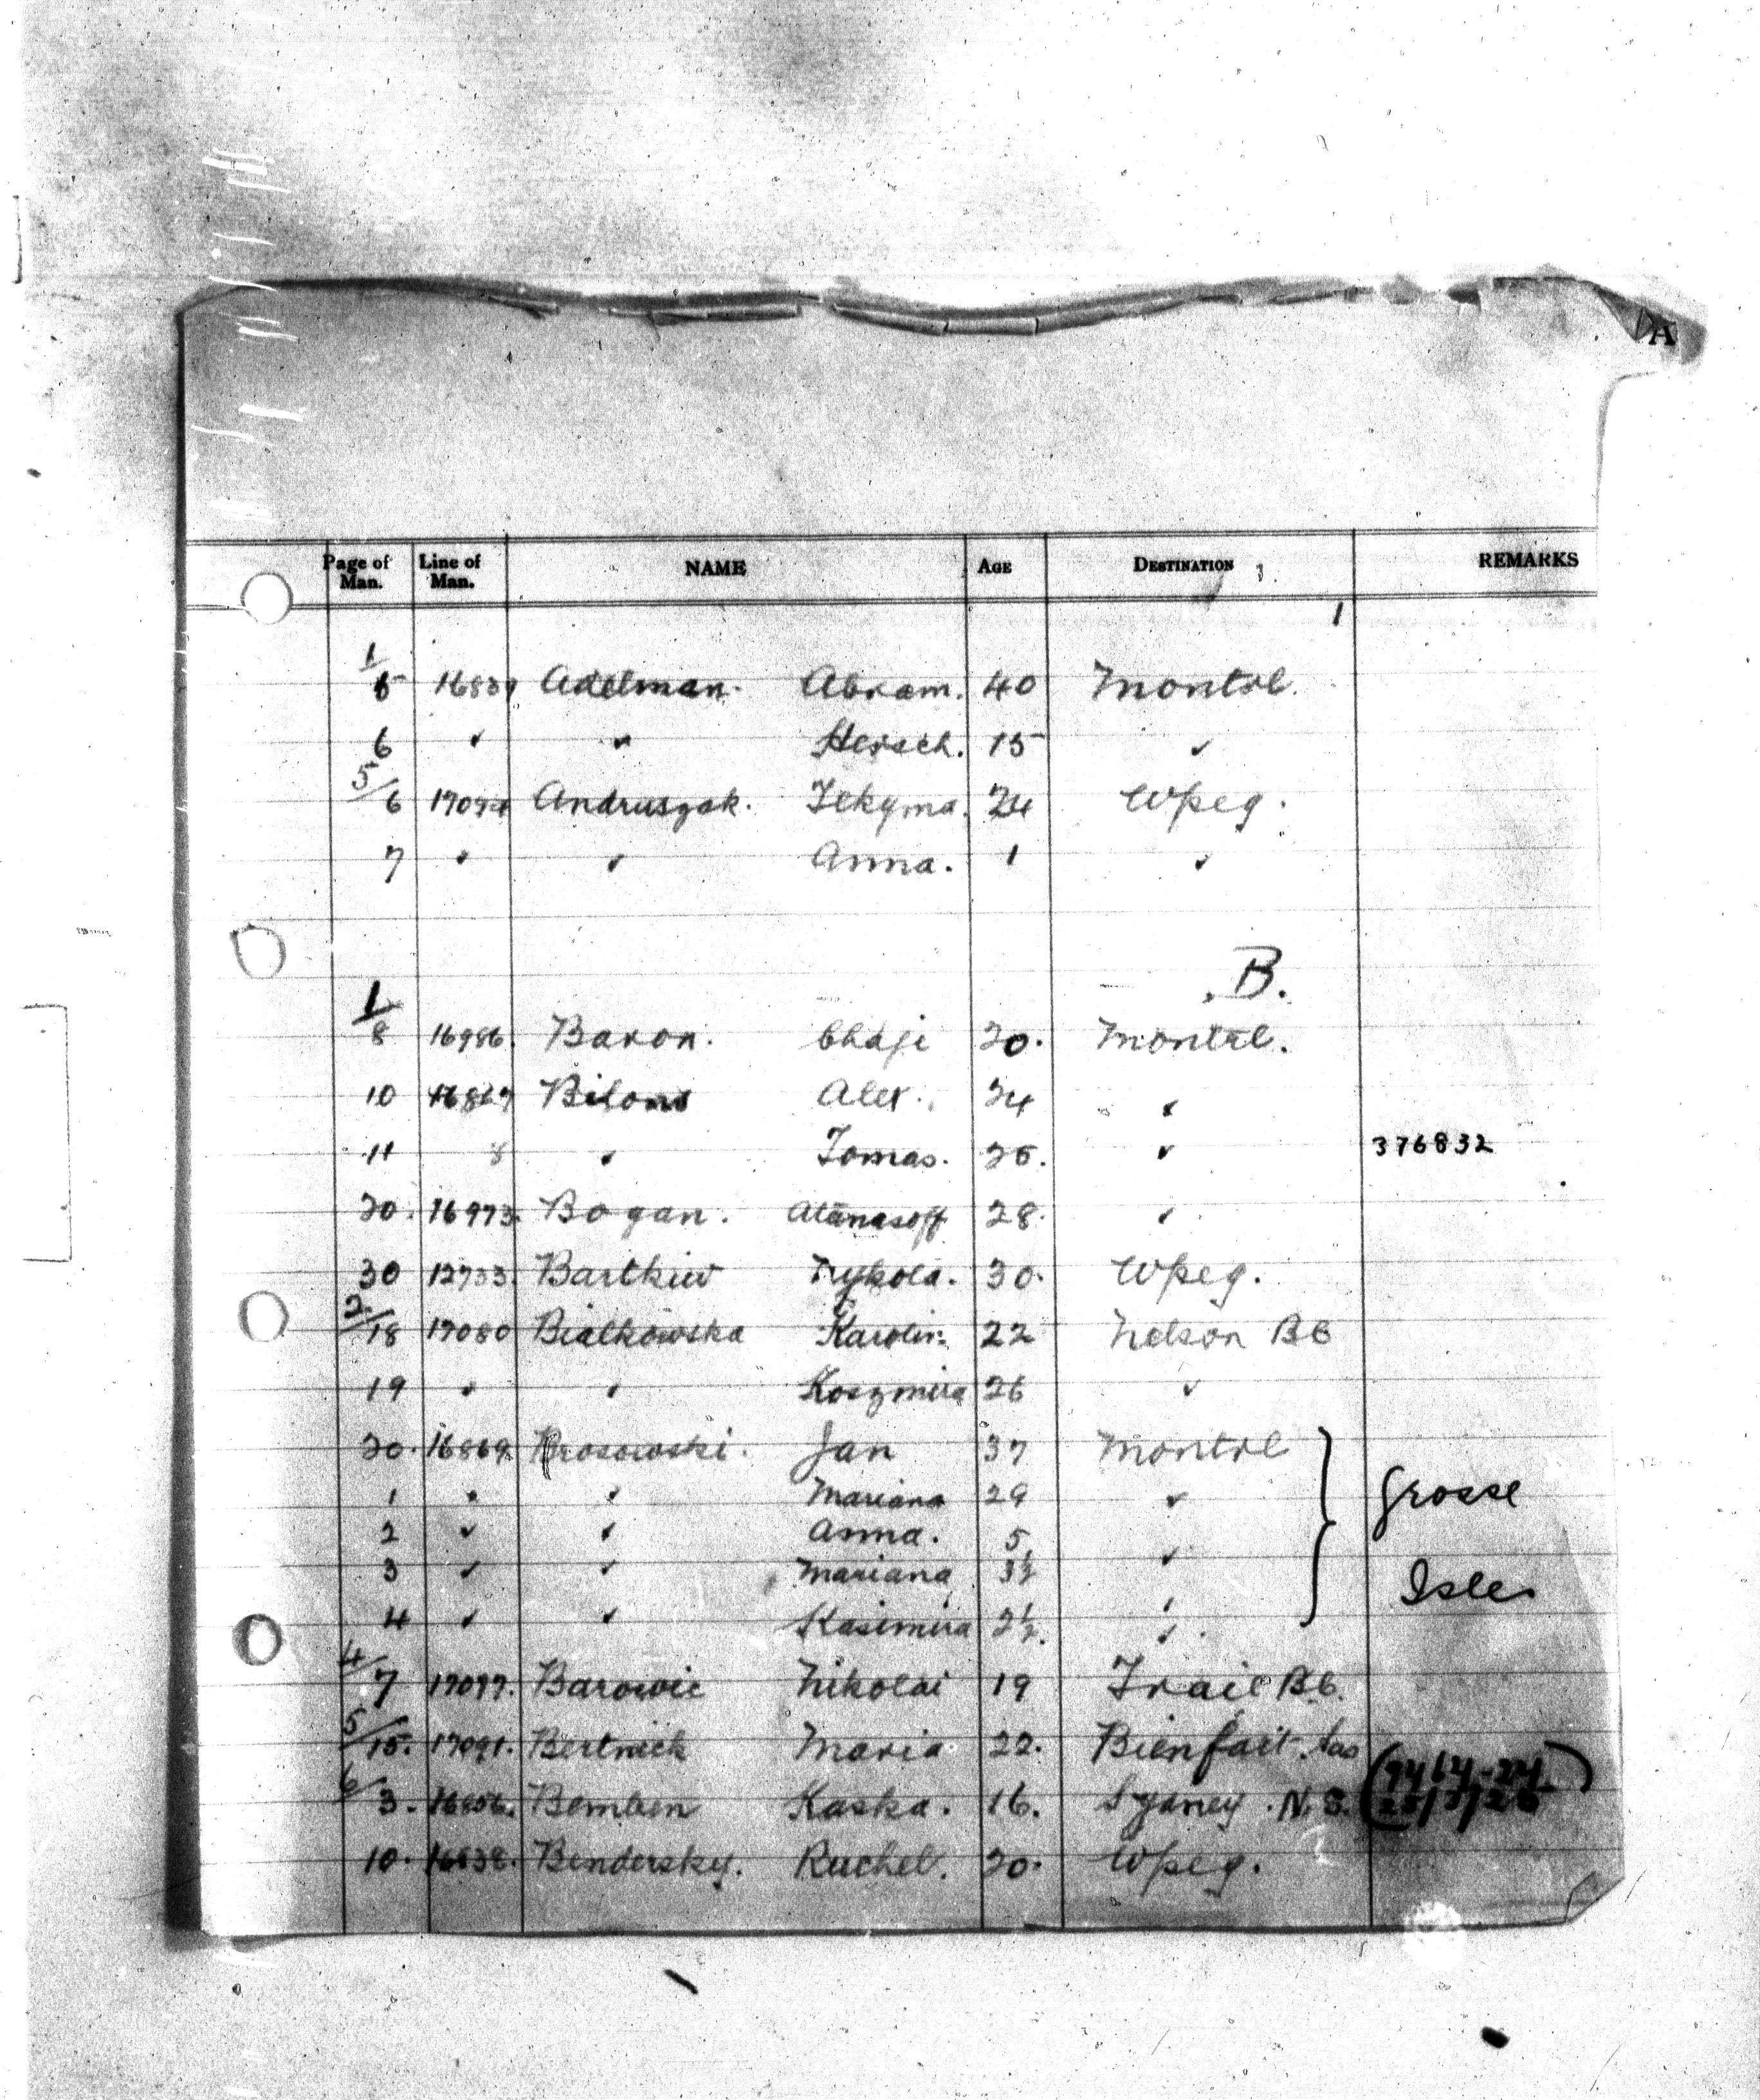 A
Page of Man. Line of Man. NAME AGE DESTINATION REMARKS
1
1/5 16839 Adelman. Abram. 40 Montrl.
6 " " Hersch. 15 "
5/6 Andruszak. 24 Wpeg.
7 " " Anna. 1 "
B.
1/8 16986. Baron. Chaje 20. Montrl.
10 16867 Alex. 24 "
11 8 " Tomas. 26. " 376832
20. 16973. Bogan. Atanasoff 28. "
30 12733. Bartkiw Mykola. 30. Wpeg.
2/18 17080 Bialkowska Karolin. 22 Nelson BC
19 " " Koszmira 26 "
20. 16869. Jan 37 Montrl
1 " " Mariana 29 " Grosse
2 " " Anna. 5 "
3 " " Mariana 3½ " Isle
4 " " Kasimira 2½. "
4/7 17097. Barowic Nikolai 19 Trail B.C.
5/15. 17091. Bertnick Maria 22. Bienfait. Sas
6/3. 16856. Bemben Kaska. 16. Sydney. N.S.
10. 16838. Bendersky. Ruchel. 20. Wpeg.